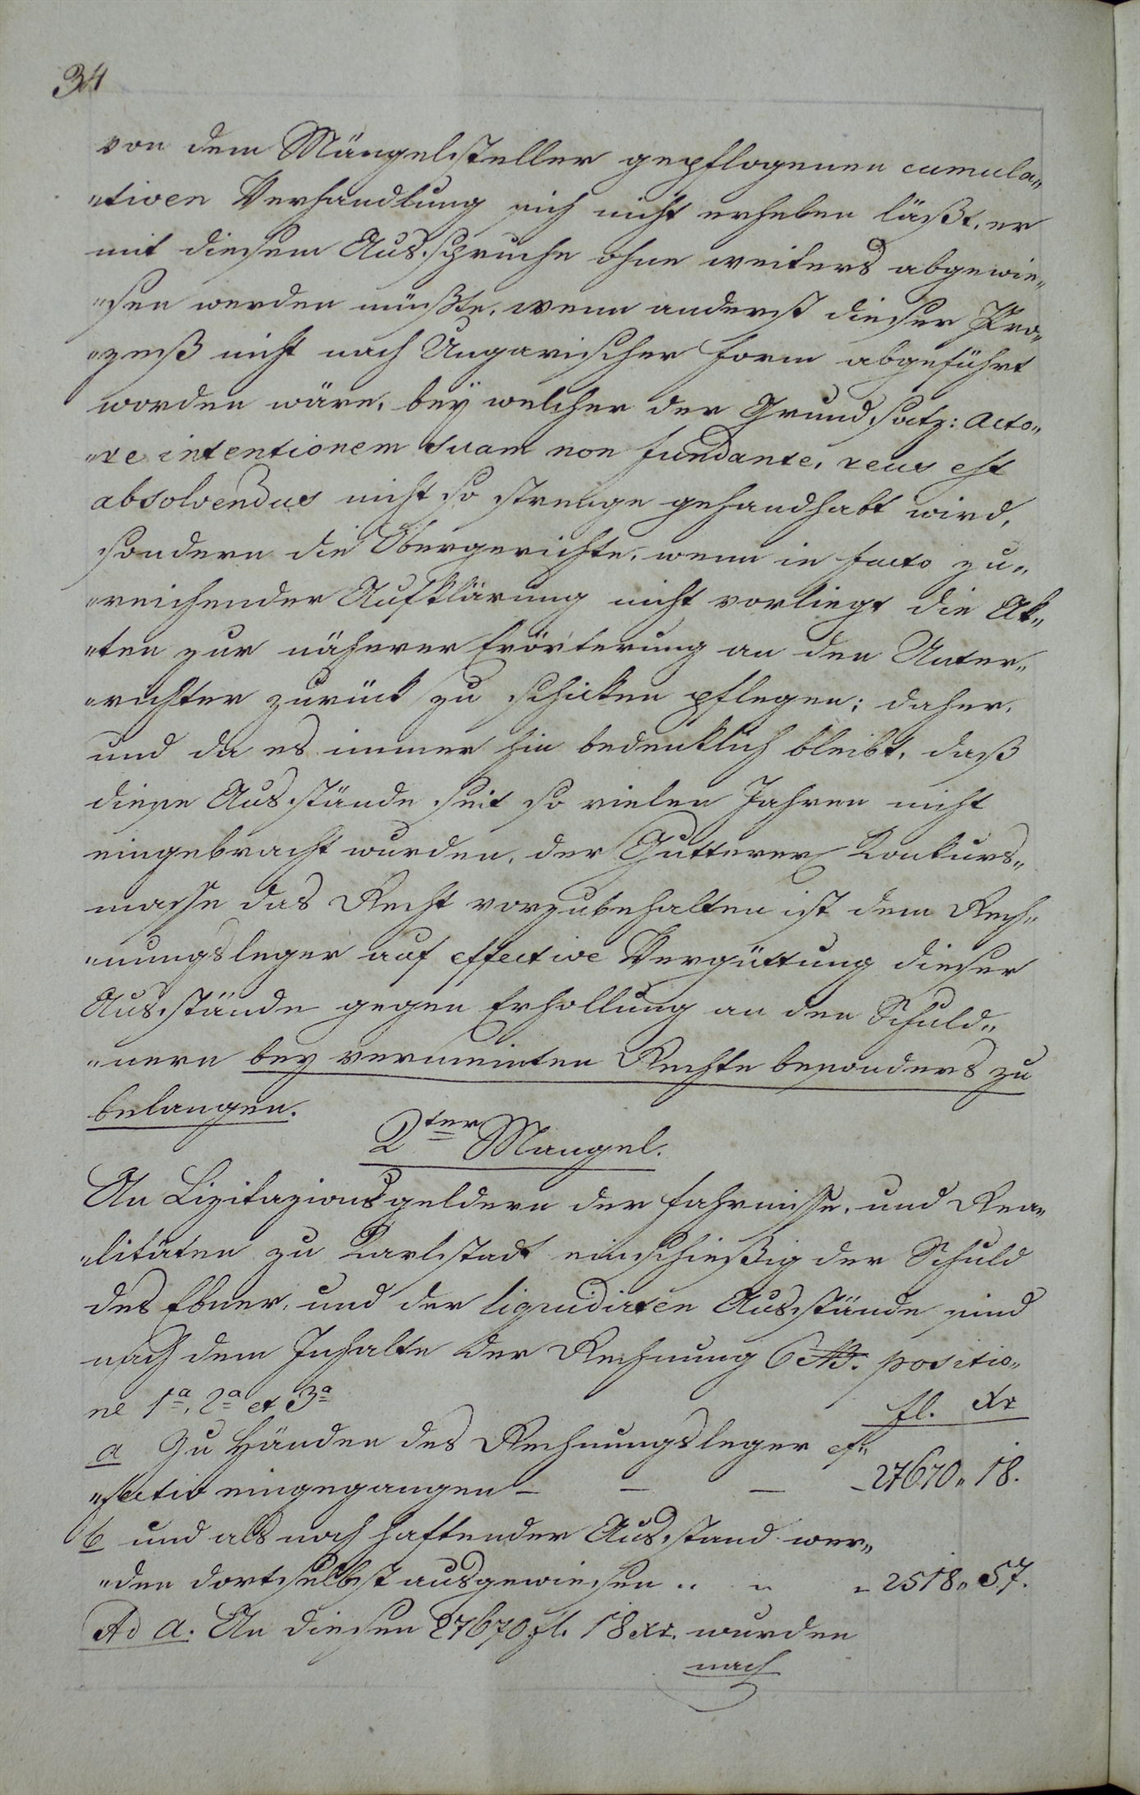 34
von dem Mängelsteller gepflogenen cumula„
„tiven Verhandlung sich nicht erheben läßt, er
mit diesem Ausspruche ohne weiters abgewie„
„sen werden müßte, wenn anderst dieser Pro„
„zeß nicht nach Ungarischer Form abgeführt
worden wäre, beÿ welcher der Grundsatz: acto„
„re intentionem suam non fundante, reus est
absolvendus nicht so strenge gehandhabt wird,
sondern die Obergerichte, wenn in facto zu„
„reichender Aufklärung nicht vorliegt die Ak„
„ten zur näherer Erörterung an den Unter„
„richter zurück zu schicken pflegen; daher,
und da es immer hin bedenklich bleibt, daß
diese Ausstände seit so vielen Jahren nicht
eingebracht wurden, der Konkurs„
masse das Recht vorzubehalten ist dem Rech„
„nungsleger auf effective Vergüttung dieser
Ausstände gegen Erhollung an den Schuld„
„nern bey vermeinten Rechte besonders zu
belangen.
2ter Mangel.
An Lizitazionsgeldern der Fahrnisse, und Rea„
„litäten zu Karlstadt einschießig der Schuld
des Ebner, und der liquidirten Ausstände sind
nach dem Inhalte der Rechnung positio„
ne 1a, 2a et 3a
fl. Xr
a Zu Händen des Rechnungsleger ef„
„fectiv eingegangen – – – – 27670„ 18.
b und als noch haftender Ausstand wer„
„den dortselbst ausgewiesen „ „ „ 2518„ 57.
Ad a. An diesen 27670 fl. 18 Xr. wurden
nach